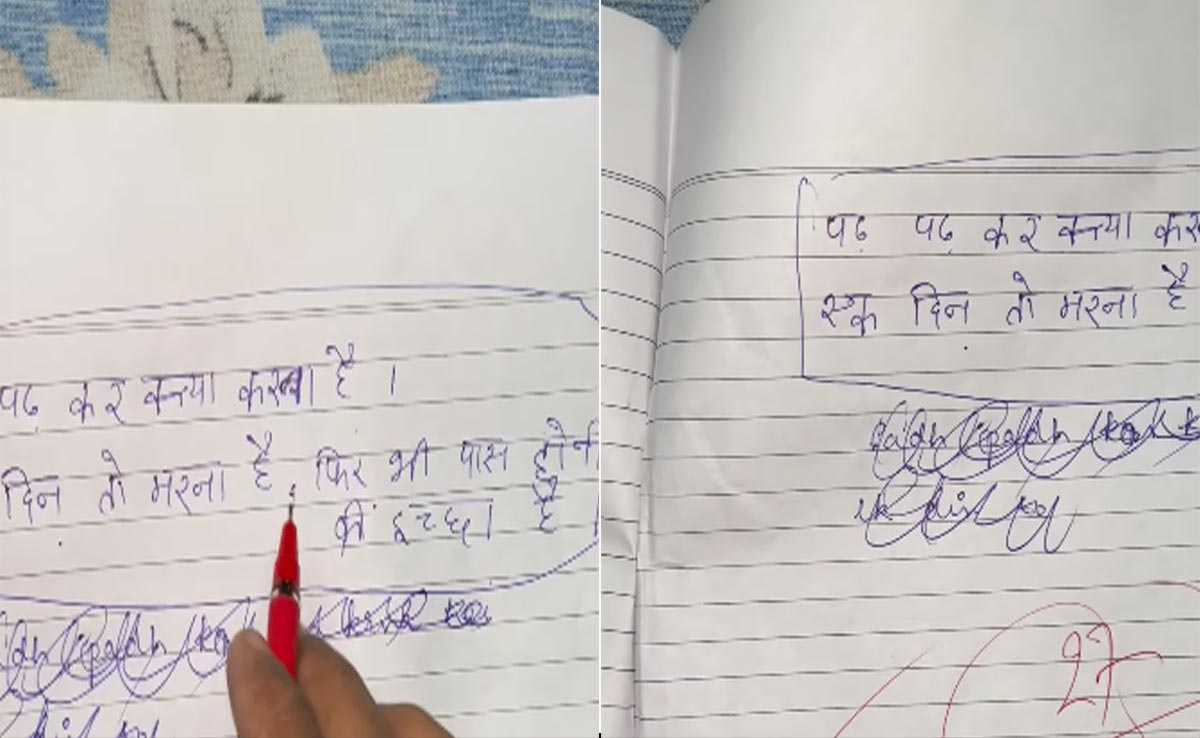 पढ़ कर क्या करना है ।
दिन तो मरना है फिर भी पास होने
की इच्छा है ।
पढ़ पढ़ कर क्या कर
एक दिन तो मरना है
27